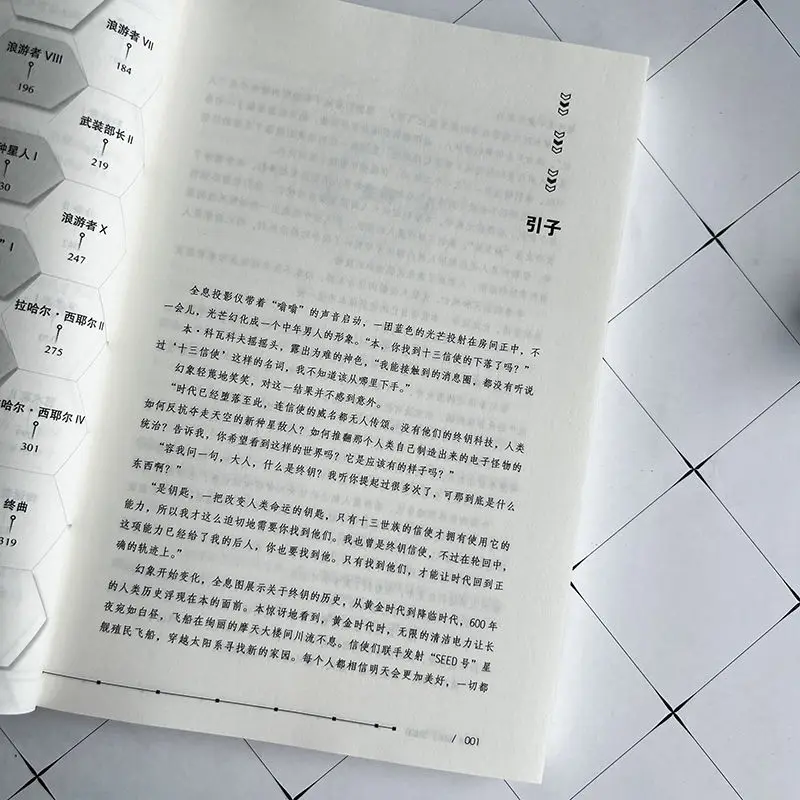 浪游者 VII
184
浪游者 VIII
196
武装部长 II
219
种星人 I
30
浪游者 X
247
” I
拉哈尔·西耶尔 II
275
哈尔·西耶尔 IV
301
终曲
319
引子
全息投影仪带着“嗡嗡”的声音启动，一团蓝色的光芒投射在房间正中，不
一会儿，光芒幻化成一个中年男人的形象。“本，你找到十三信使的下落了吗？”
本·科瓦科夫摇摇头，露出为难的神色，“我能接触到的消息圈，都没有听说
过‘十三信使’这样的名词，我不知道该从哪里下手。”
幻象轻蔑地笑笑，对这一结果并不感到意外。
“时代已经堕落至此，连信使的威名都无人传颂。没有他们的终钥科技，人类
如何反抗夺走天空的新种星敌人？如何推翻那个人类自己制造出来的电子怪物的
统治？告诉我，你希望看到这样的世界吗？它是应该有的样子吗？”
“容我问一句，大人，什么是终钥？我听你提起过很多次了，可那到底是什么
东西啊？”
“是钥匙，一把改变人类命运的钥匙，只有十三世族的信使才拥有使用它的
能力，所以我才这么迫切地需要你找到他们。我也曾是终钥信使，不过在轮回中，
这项能力已经给了我的后人，你也要找到他。只有找到他们，才能让时代回到正
确的轨迹上。”
幻象开始变化，全息图展示关于终钥的历史，从黄金时代到降临时代，600 年
的人类历史浮现在本的面前。本惊讶地看到，黄金时代时，无限的清洁电力让长
夜宛如白昼，飞船在绚丽的摩天大楼间川流不息。信使们联手发射“SEED 号”星
舰殖民飞船，穿越太阳系寻找新的家园。每个人都相信明天会更加美好，一切都
/ 001